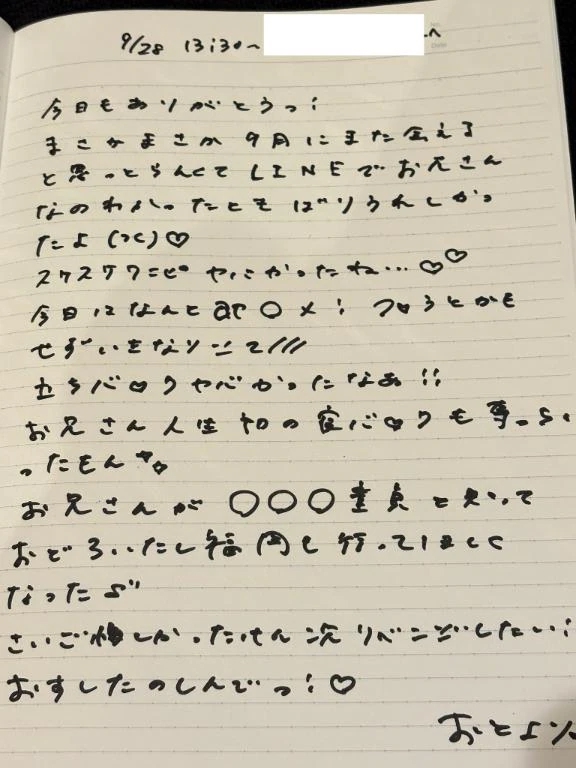 9/28 13:30〜 へ
今日もありがとうっ!
まさかまさか9月にまた会える
と思っとらんくてLINEでお兄さん
なのわかったときばりうれしかっ
たよ(つ<)♡
スケスケワンピやばかったね…♡♡
今日はなんと@〇メ! つ♡うとかも
せずいきなり///
立ちバ♡クやばかったなぁ!!
お兄さん人生初の寝バ♡クも
ったもん
お兄さんが〇〇〇童貞と知って
おどろいたし福岡も行ってほしく
なったぞ
さいご悔しかったけん次リベンジしたい!
おすしたのしんでっ!♡